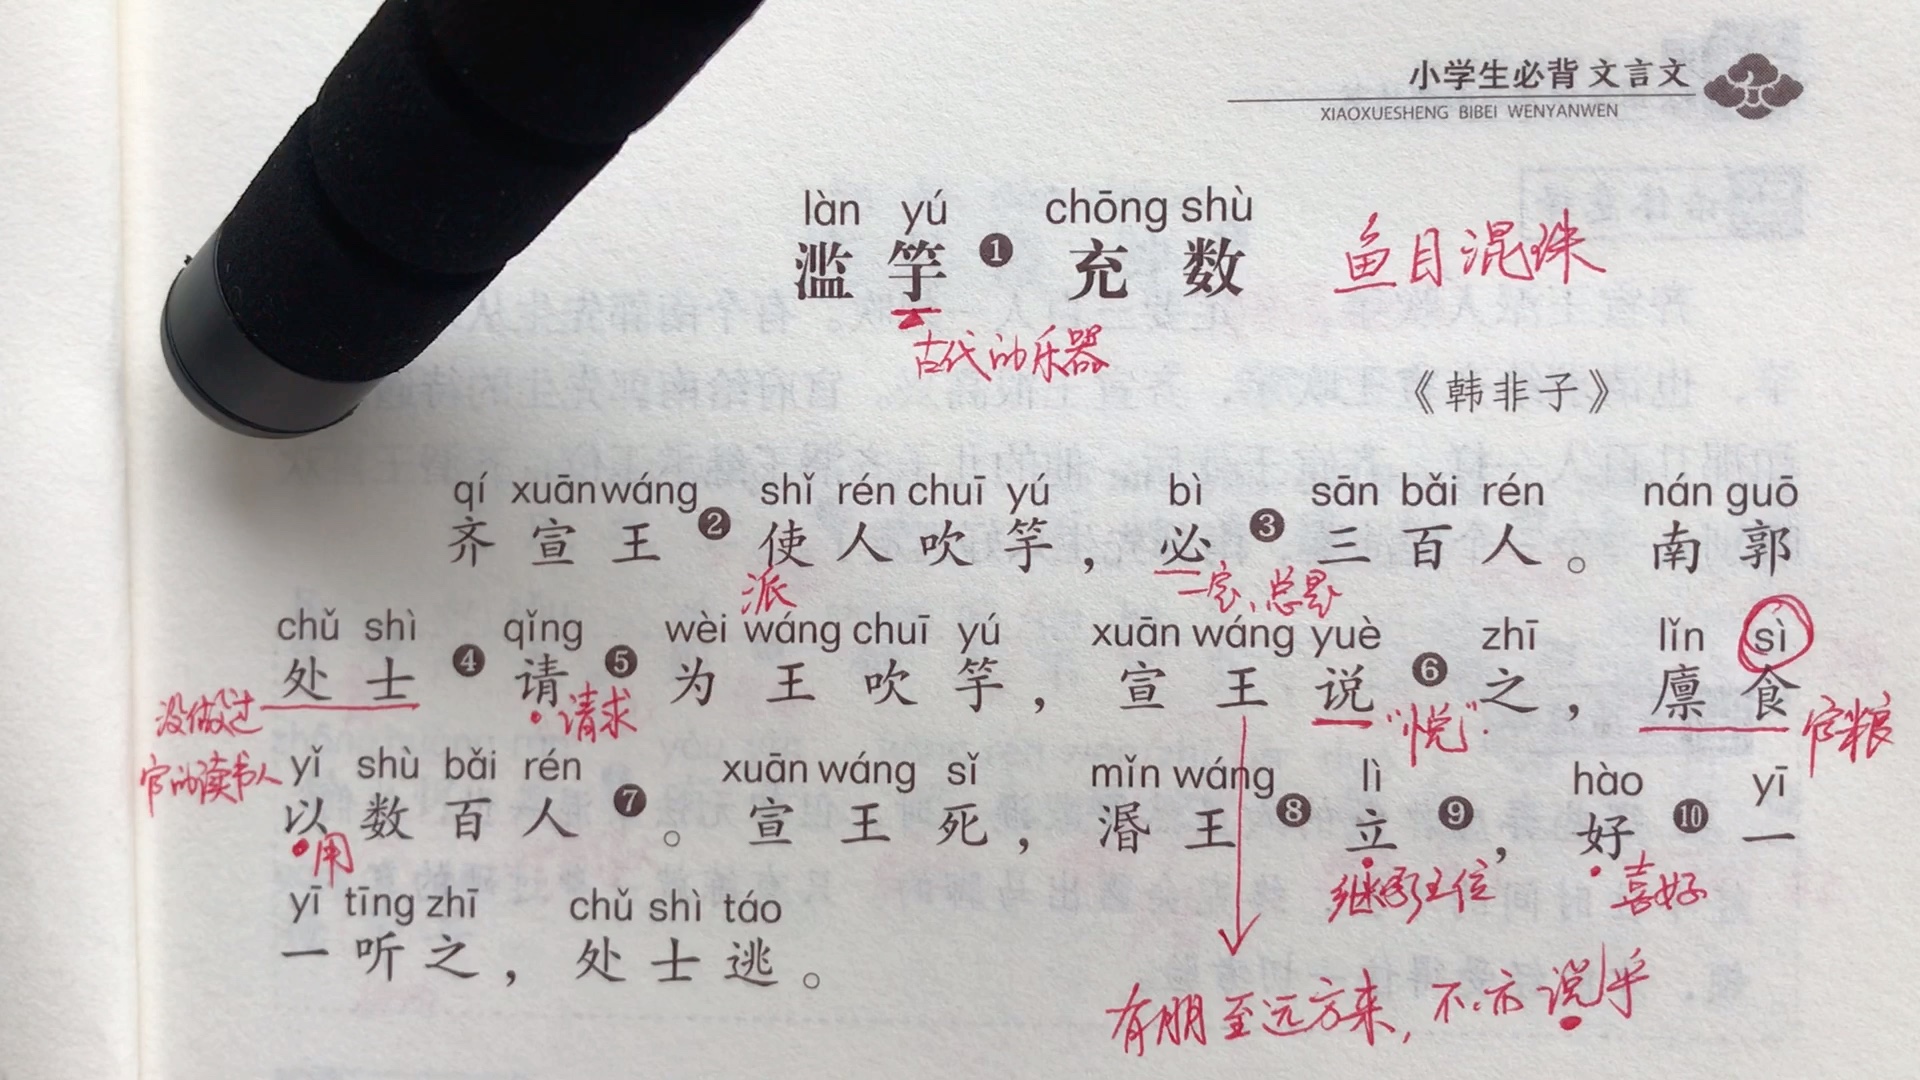 小学生必背文言文
XIAOXUESHENG BIBEI WENYANWEN
làn yú chōng shù
滥竽❶充数 鱼目混珠
古代的乐器
《韩非子》
qí xuān wáng shǐ rén chuī yú bì sān bǎi rén nán guō
齐宣王❷使人吹竽，必❸三百人。南郭
派 一定、总是
chǔ shì qǐng wèi wáng chuī yú xuān wáng yuè zhī lǐn sì
处士❹请❺为王吹竽，宣王说❻之，廪食
没做过 请求 “悦” 官粮
官的读书人
yǐ shù bǎi rén xuān wáng sǐ mǐn wáng lì hào yī
以数百人❼。宣王死，湣王❽立❾，好❿一
用 继承王位 喜好
yī tīng zhī chǔ shì táo
一听之，处士逃。
有朋至远方来，不亦说乎